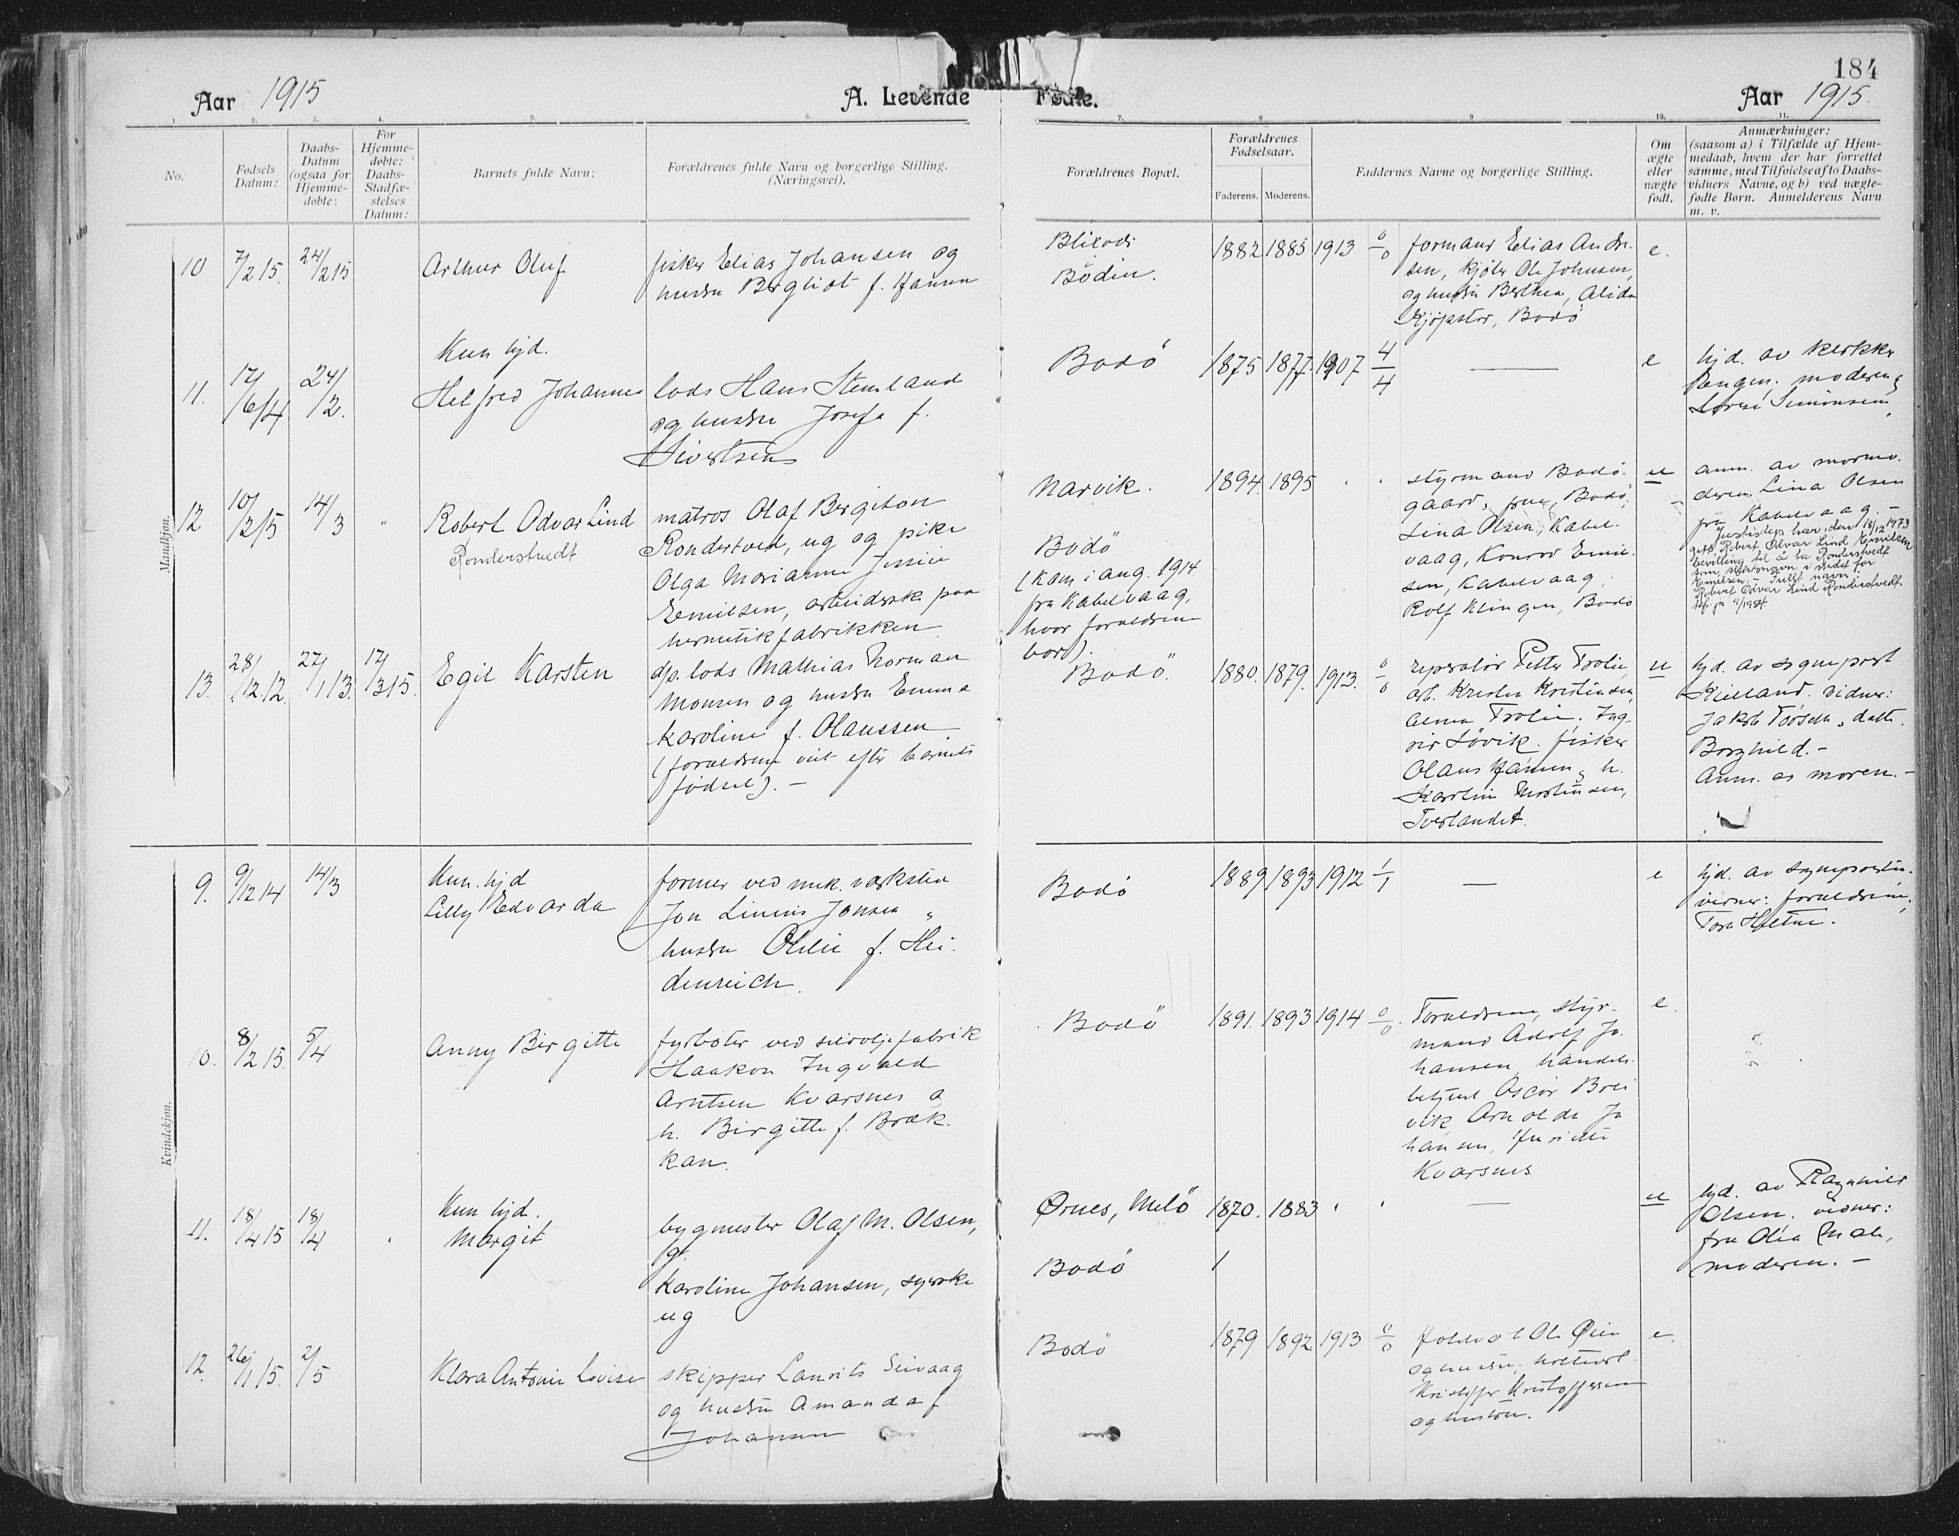 184
Aar 1915
A. Levende
Fødte.
Aar 1915.
1. 2. 3. 4. 5. 6. 7. 8. 9. 10. 11.
No.
Fødsels Datum:
Daabs-
Datum
(ogsaa for
Hjemme-
døbte:
For
Hjemme-
døbte:
Daabs-
Stadfæ-
stelses
Datum:
Barnets fulde Navn:
Forældrenes fulde Navn og borgerlige Stilling.
(Næringsvei).
Forældrenes Bopæl.
Forældrenes
Fødselsaar.
Faderens. Moderens.
Faddernes Navne og borgerlige Stilling.
Om
ægte
eller
uægte
født.
Anmærkninger:
(saasom a) i Tilfælde af Hjem-
medaab, hvem der har forrettet
samme, med Tilføielse af to Daabs-
vidners Navne, og b) ved uægte-
fødte Børn. Anmelderens Navn
m. v.
Mandkjøn.
10
7/2 15.
24/2 15
Arthur Oluf
fisker Elias Johansen og
hustru Bergliot f. Hansen
Bodin.
1882 1885 1913 0/0
formand Elias Andre-
sen, Ole Johnsen,
og hustru Berthea, Alida
Kjøpstad, Bodø
e.
11.
17/6/14
24/2.
Kun hjd.
Helfred Johannes
lods Hans Stemland
og hustru Josefa f.
Sivertsen
Bodö
1875 1877 1907 4/4
—
e
hjd. av kirkes
moderen,
Simonsen
12
10/2 15
14/3
"
Robert Odvar Lind
Ronderstvedt
matros Olaf Bergiton
Rondertved, ug og pike
Olga Marianne
Emilsen, arbeiderske paa
hermetikfabrikken
Narvik.
Bodö
(kom i aug. 1914
fra Kabelvaag,
hvor forældrene
bor).
1894. 1895
styrmand Bodø-
gaard, frue, Bodø,
Lina Olsen, Kabel-
vaag, Konrad Emil-
sen, Kabelvaag,
Rolf Klingen, Bodø
u
anm. av mormo-
deren Lina Olsen
fra Kabelvaag. —
Justisdep. har den 18/12 1973
gitt Robert Odvar Lind Emilsen
bevilling til å ta Ronderstvedt
som slektsnavn i stedet for
Emilsen. — Fullt navn:
Robert Odvar Lind Ronderstvedt
13.
28/12 12
27/1 13.
17/3 15.
Egil Karsten
dp. lods Mathias Norman
Monsen og hustru Emma
Karoline f. Olaussen
(forældrene viet efter barnets
fødsel). —
Bodö.
1880. 1879. 1913. 0/0
reperatør Petter Trolie,
arb. Kristen Kristensen,
Alma Trolie. Ing-
rid Løvik. fisker
Olaus Hansen, h.
Karoline Mortensen,
Tverlandet.
u
hjd. av sognepræst
Kielland. vidner:
Jakob, datt.
Borghild. —
Anm. av moren. —
Kvindekjøn.
9.
9/12 14
14/3
Kun hjd
Lilly Edvarda
former ved mek. værksted
Jon Linius Jonsen
hustru Otilie f. Hei-
denreich.
Bodö
1889 1893 1912 1/1
—
e
hjd. av sognepresten.
vidner: forældrene,
10.
8/2 15.
5/4
Anny Birgitte
fyrbøter ved sildoljefabrik
Haakon Ingvald
Arntsen Kvarsnes
h. Birgitte f. Bræk-
kan.
Bodö
1891. 1893 1914 0/0.
Forældrene, styr-
mand Adolf Jo-
hansen, handels-
betjent Oscar Brei-
vik, Jo-
hansen,
Kvarsnes
e
11.
18/4 15
18/4
Kun hjd.
Margit
bygmester Olaf M. Olsen,
g.
Karoline Johansen, syerske
ug
Ørnes, Melö
Bodö
1870. 1883
—
u
hjd. av Ragnhild
Olsen. vidner:
fru Olea
moderen. —
12.
26/1 15.
2/5
Klara Antonie Lovise
skipper Laurits Seivaag
og hustru Amanda f.
Johansen
Bodö
1879 1892 1913 0/0
Ole Øien
og hustru,
Kristoffer Kristoffersen
og hustru.
e.